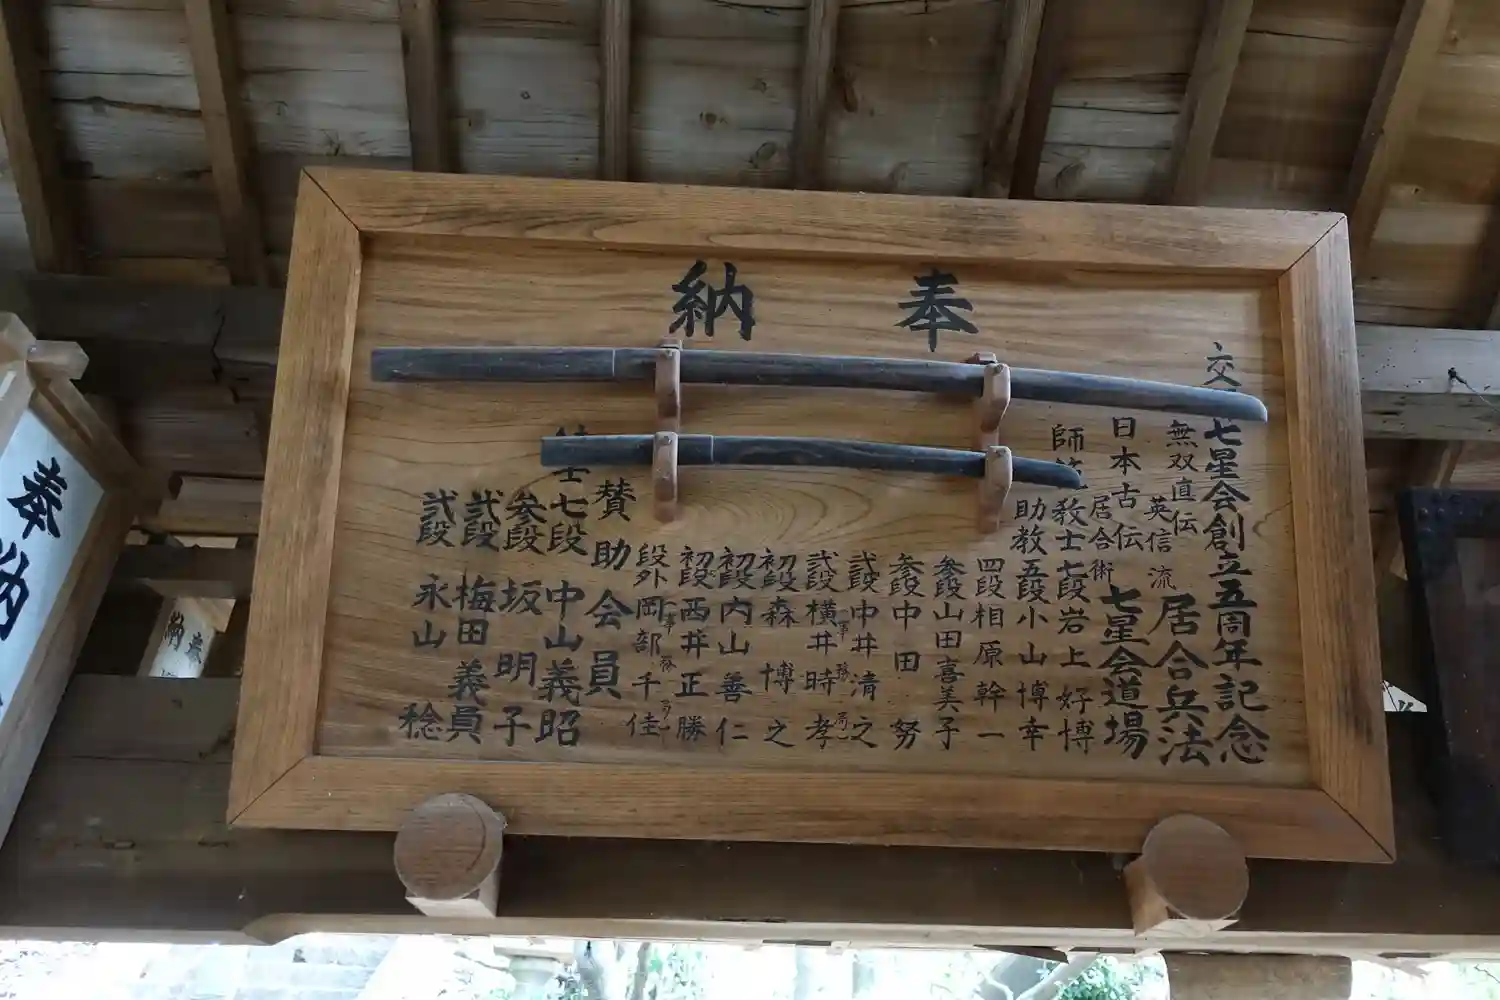 奉納
交
七星会創立五周年記念
無双直伝
英信流
居合兵法
日本古伝
居合術
七星会道場
師範
教士七段岩上好博
助教五段小山博幸
四段相原幹一
参段山田喜美子
参段中田努
弐段中井清之
弐段横井時孝
初段森博之
初段内山善仁
初段西井正勝
段外岡部千佳
賛助会員
士七段中山義昭
参段坂明子
弐段梅田義員
弐段永山稔
奉納
奉納